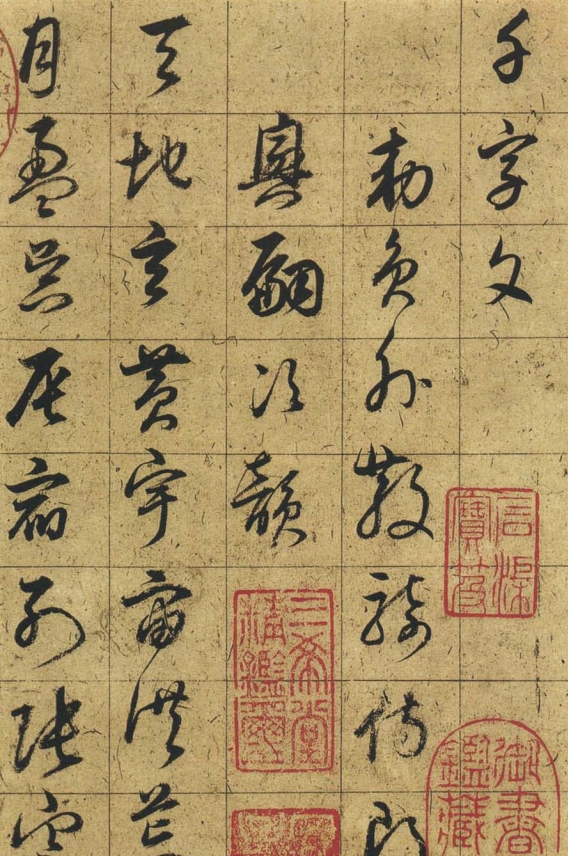 千字文
勅員外散騎侍郎
興嗣次韻
天地玄黄宇宙洪荒
月盈昃辰宿列張寒
石渠寶笈
三希堂精鑑璽
御書
鑑藏